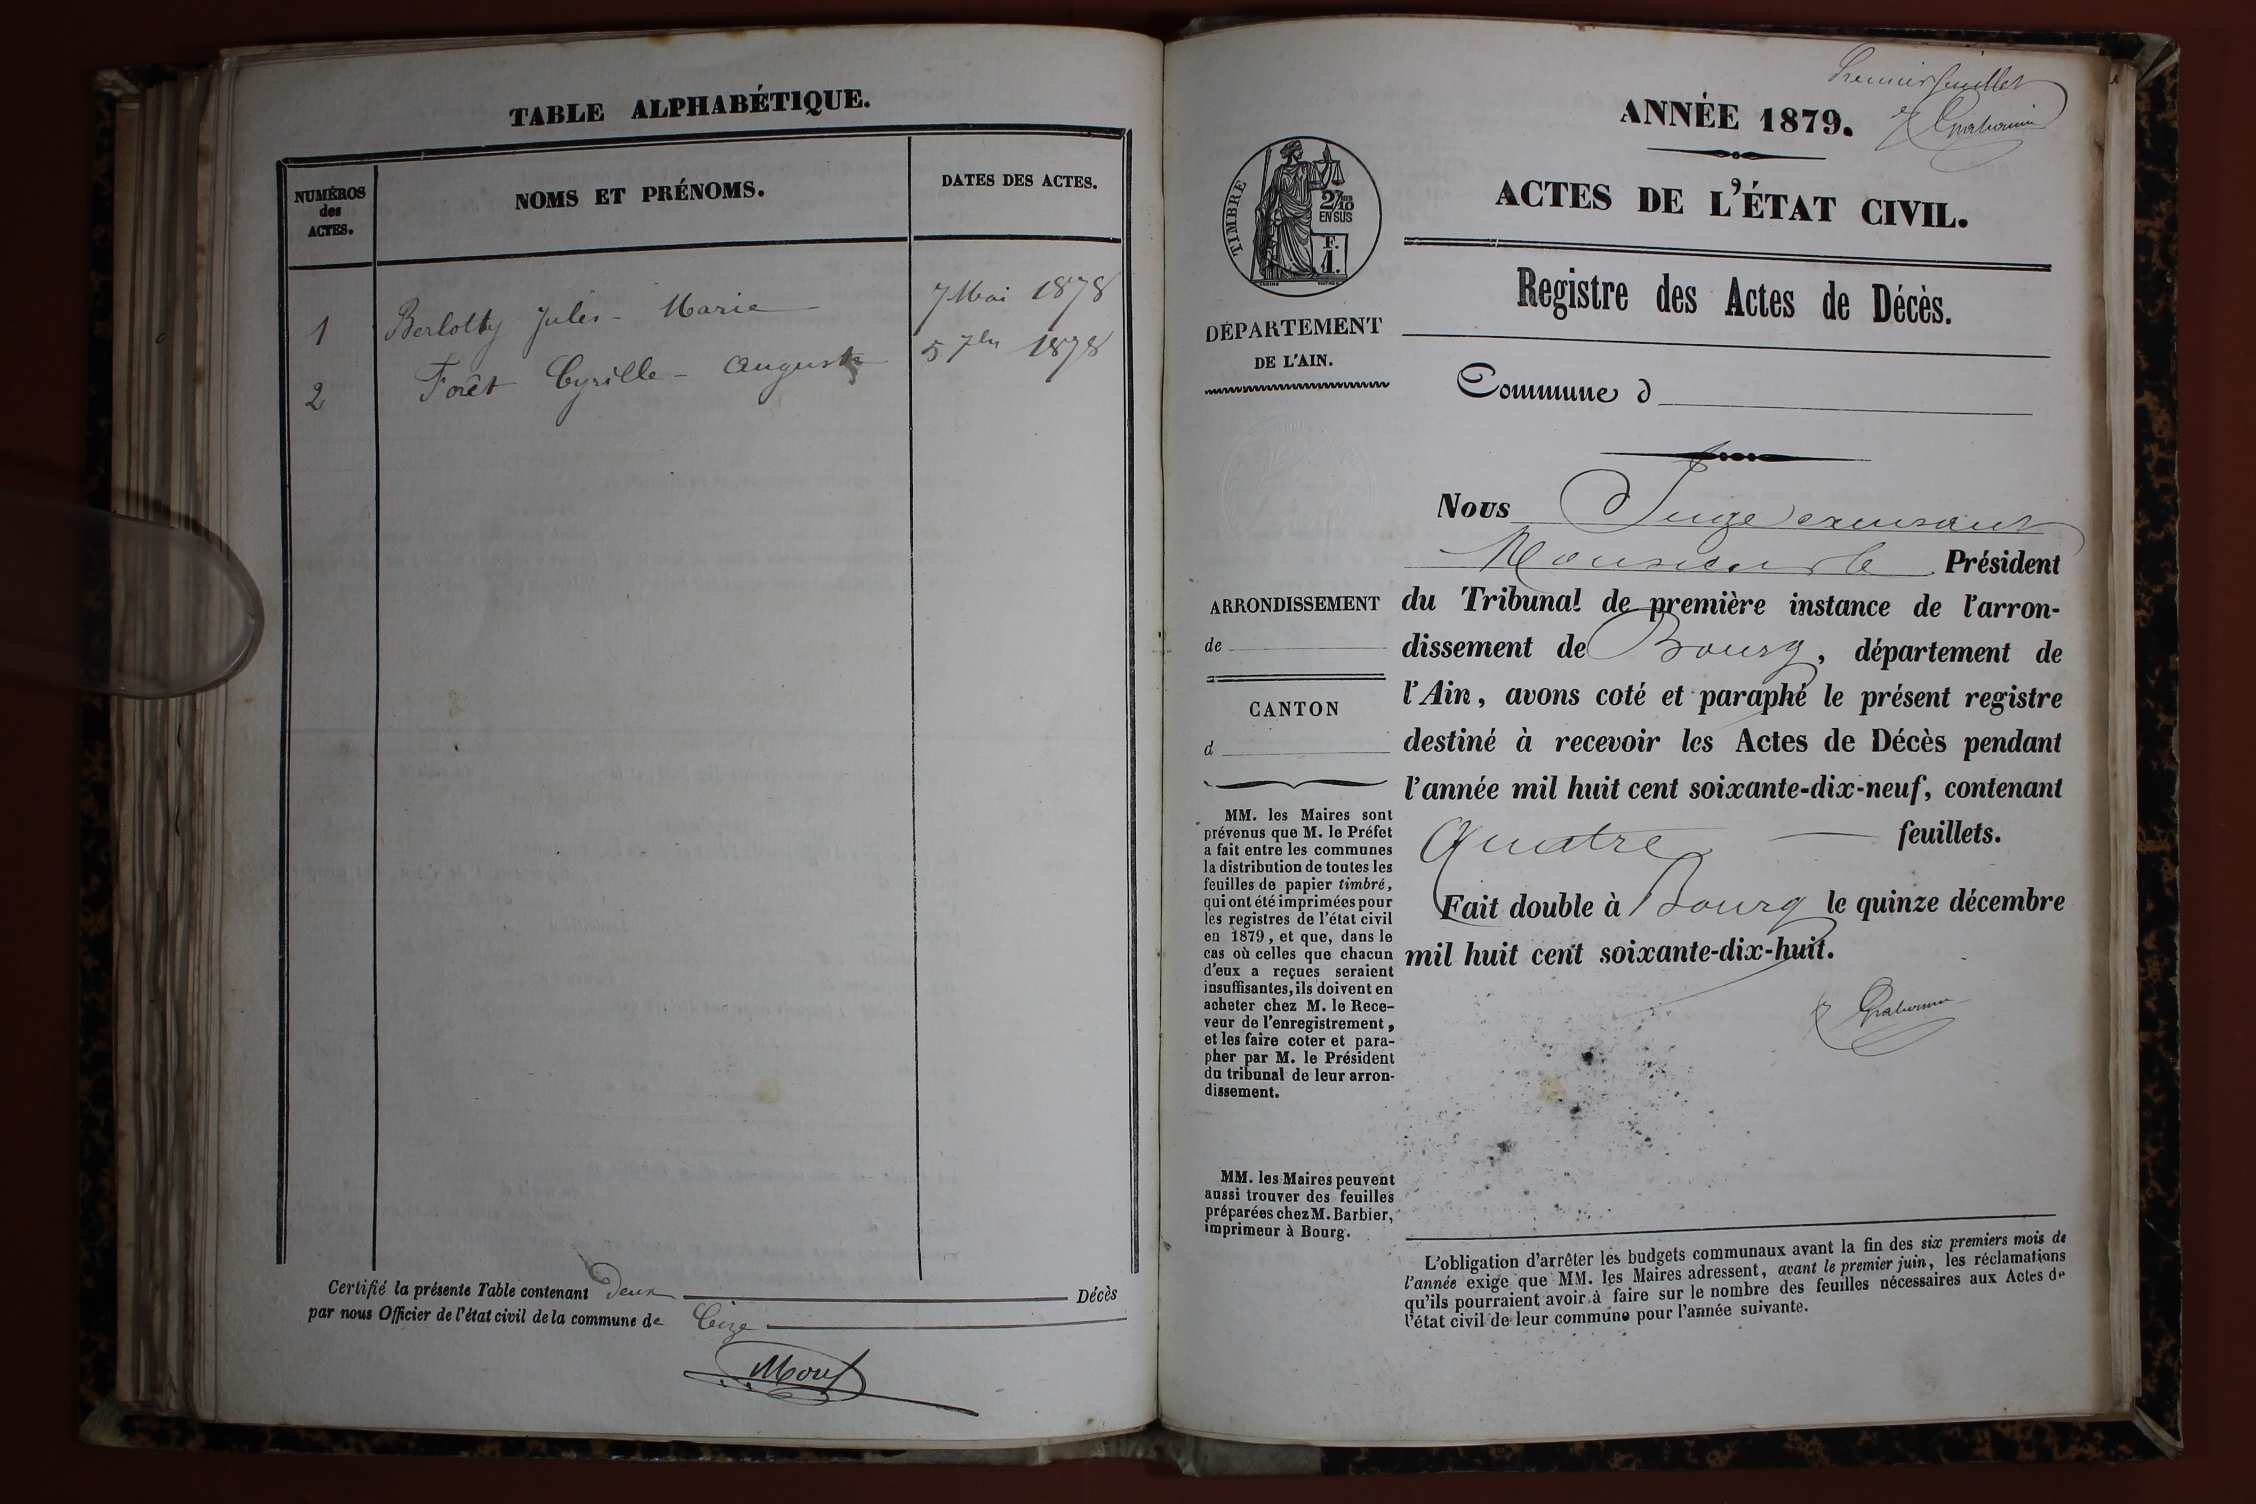 TABLE ALPHABÉTIQUE.
NUMÉROS
des
ACTES.
NOMS ET PRÉNOMS.
DATES DES ACTES.
1 Berlotty Jules - Marie 7 Mai 1878
2 Forêt Cyrille - Auguste 5 7bre 1878
Certifié la présente Table contenant deux Décès
par nous Officier de l'état civil de la commune de Cize
Premier feuillet
ANNÉE 1879.
ACTES DE L'ÉTAT CIVIL.
Registre des Actes de Décès.
Commune d
TIMBRE
2/10
EN SUS
F.
1.
DÉPARTEMENT
DE L'AIN.
ARRONDISSEMENT
de
CANTON
d
MM. les Maires sont
prévenus que M. le Préfet
a fait entre les communes
la distribution de toutes les
feuilles de papier timbré,
qui ont été imprimées pour
les registres de l'état civil
en 1879, et que, dans le
cas où celles que chacun
d'eux a reçues seraient
insuffisantes, ils doivent en
acheter chez M. le Rece-
veur de l'enregistrement,
et les faire coter et para-
pher par M. le Président
du tribunal de leur arron-
dissement.
MM. les Maires peuvent
aussi trouver des feuilles
préparées chez M. Barbier,
imprimeur à Bourg.
Nous Juge excusant
Monsieur le Président
du Tribunal de première instance de l'arron-
dissement de Bourg, département de
l'Ain, avons coté et paraphé le présent registre
destiné à recevoir les Actes de Décès pendant
l'année mil huit cent soixante-dix-neuf, contenant
Quatre feuillets.
Fait double à Bourg le quinze décembre
mil huit cent soixante-dix-huit.
L'obligation d'arrêter les budgets communaux avant la fin des six premiers mois de
l'année exige que MM. les Maires adressent, avant le premier juin, les réclamations
qu'ils pourraient avoir à faire sur le nombre des feuilles nécessaires aux Actes de
l'état civil de leur commune pour l'année suivante.